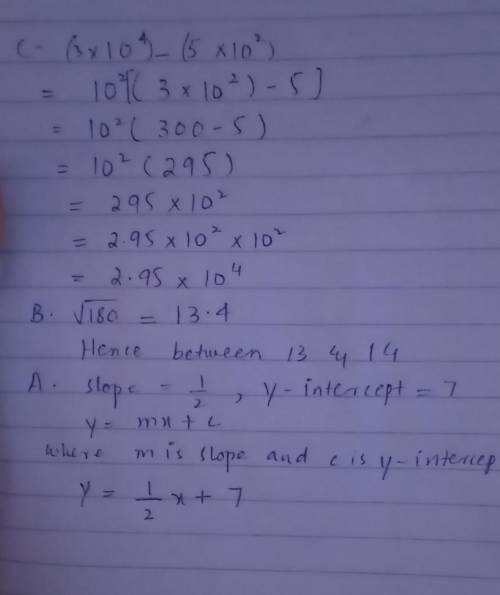 C- (3×10⁴) - (5 ×10²)
= 10²[( 3 × 10²) - 5]
= 10² ( 300 - 5)
= 10² (295)
= 295 × 10²
= 2.95 × 10² × 10²
= 2.95 × 10⁴
B. √180 = 13.4
Hence between 13 & 14
A. slope = 1/2 , y-intercept = 7
y = mx + c
where m is slope and c is y-intercep
y = 1/2 x + 7